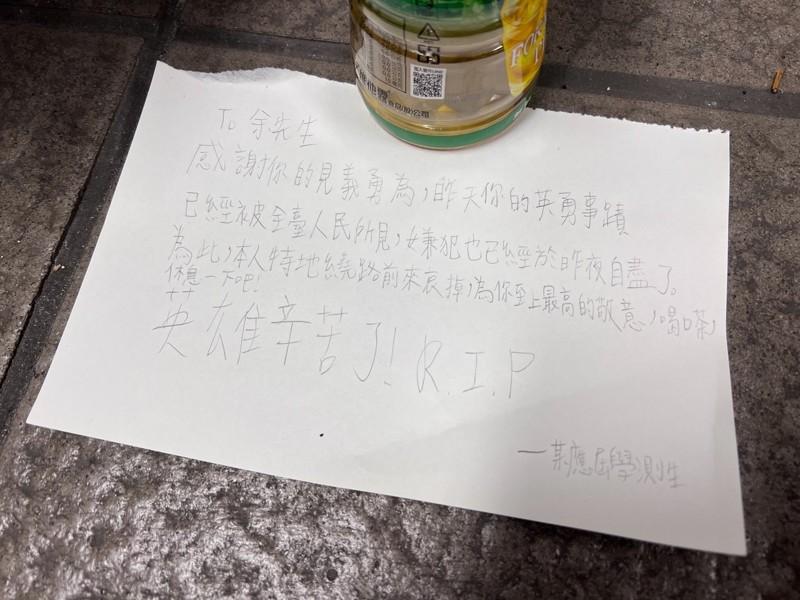 To 余先生
感謝你的見義勇為,昨天你的英勇事蹟
已經被全臺人民所見,嫌犯也已經於昨夜自盡了。
為此,本人特地繞路前來哀掉,為你至上最高的敬意,喝口茶,
休息一下吧!
英雄辛苦了! R.I.P
—某應屆學測生